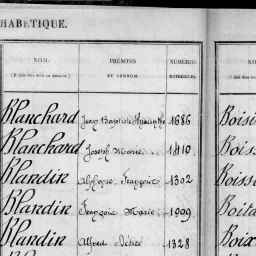 HABÉTIQUE.
NOM. PRÉNOMS NUMÉROS NOM.
OU SURNOM.
Blanchard Jean Baptiste Hyacinthe 1686 Boisi
Blanchard Joseph Marie 1410 Boiss
Blandin Alphonse François 1302 Boissi
Blandin François Marie 1909 Boita
Blandin Alfred Désiré 1328 Boix